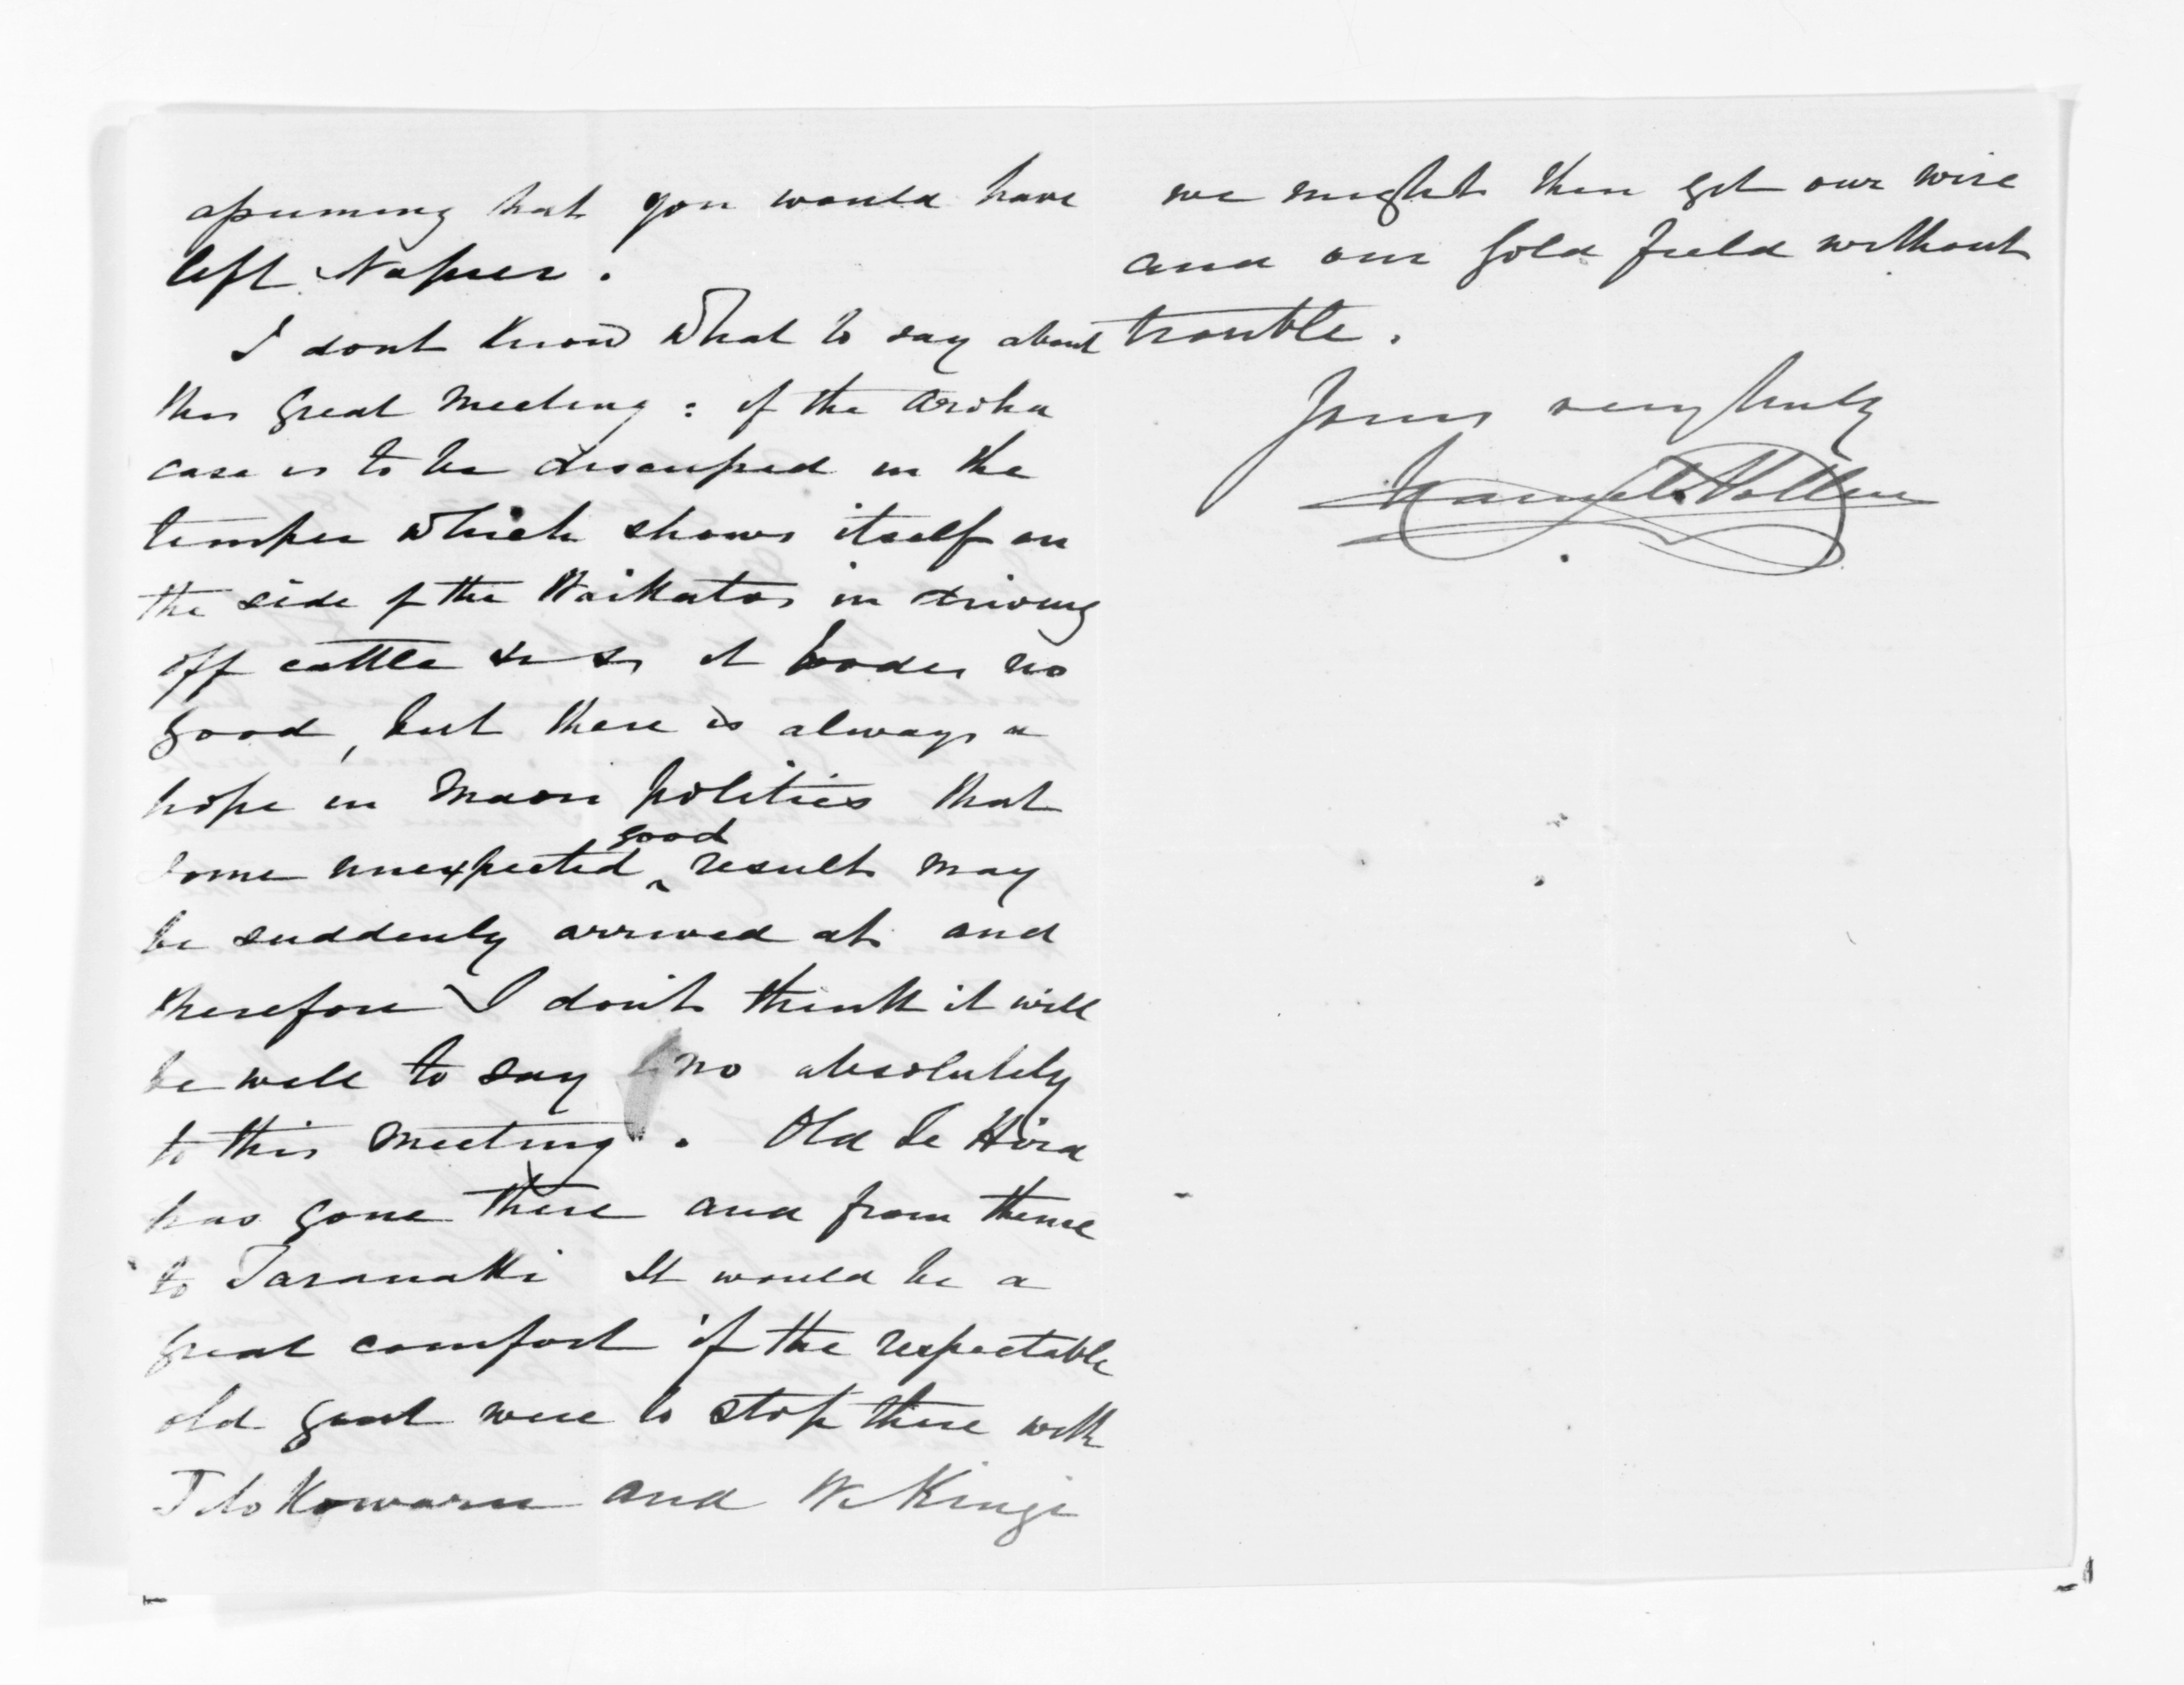 assuming that you would have
left Napier.
I dont know what to say about
this great meeting: if the Aroha
case is to be discussed in the
temper which shows itself on
the side of the Waikatos in driving
off cattle &c &c it bodes no
good, but there is always a
hope in Maori politics that
some unexpected good result may
be suddenly arrived at and
therefore I don't think it will
be well to say no absolutely
to this meeting. Old Te Hira
has gone there and from thence
to Taranaki It would be a
great comfort if the respectable
old goat were to stop there with
Titokowaru and W. Kingi
we might then get our wire
and our Gold field without
trouble.
Yours very truly
Daniel Pollen